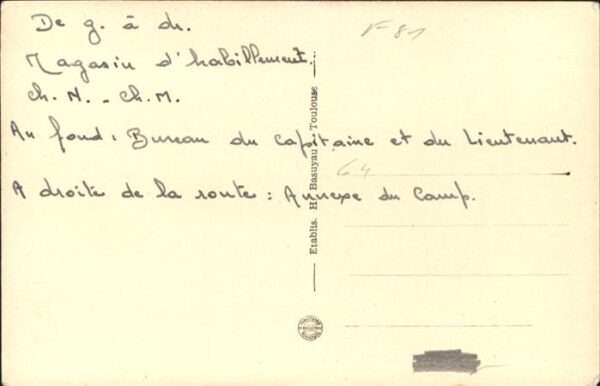 De g. à dr.
Magasin d'habillement.
Ch. N. - Ch. M.
Au fond : Bureau du Capitaine et du Lieutenant.
A droite de la route : Annexe du Camp.
F 81
64
Etablis. H. Basuyau Toulouse